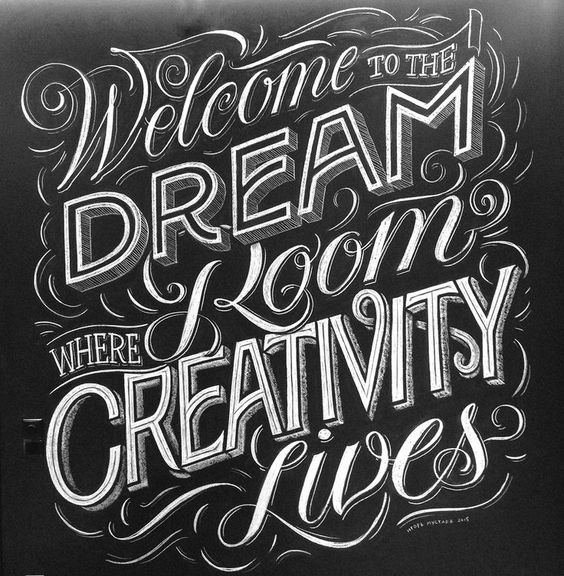 Welcome TO THE
DREAM
Room
WHERE
CREATIVITY
Lives
2015